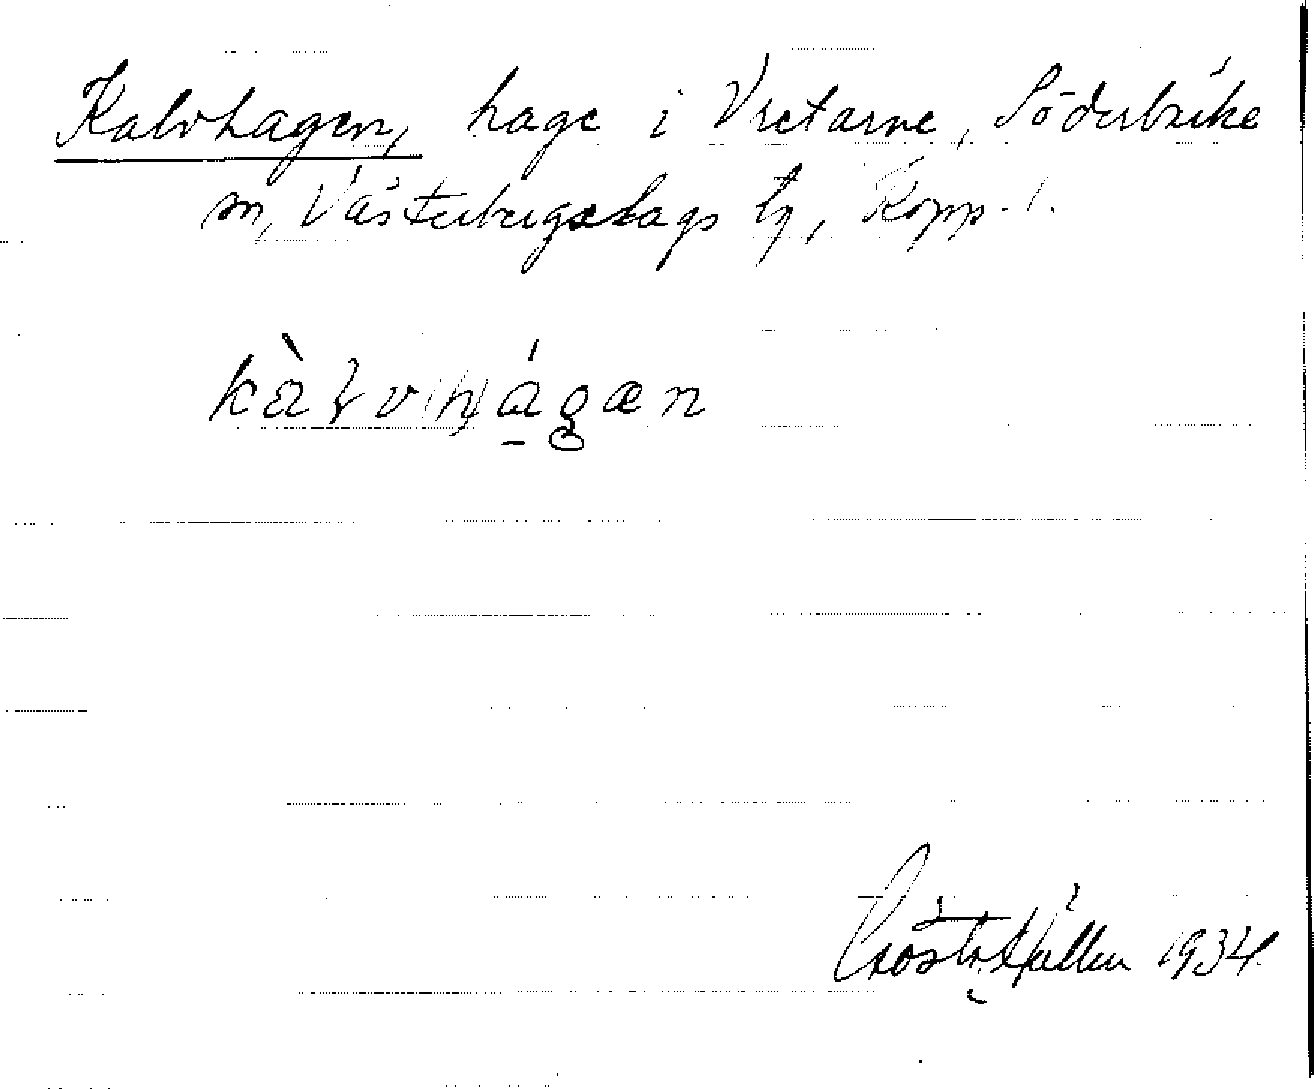 Kalvhagen, hage i Vretarne, Söderbärke
sn, Västerbergslags tg, Kopp. l.
kàlv(h)ágæn
Gösta 1934